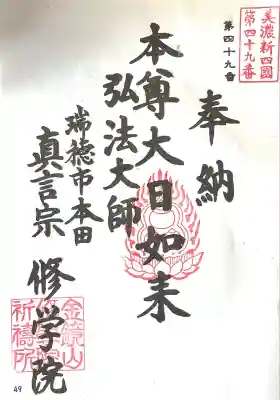 美濃新四國
第四十九番
第四十九番
奉納
本尊大日如来
弘法大師
瑞穂市本田
真言宗
修学院
金鏡山
修学院
祈禱所
49